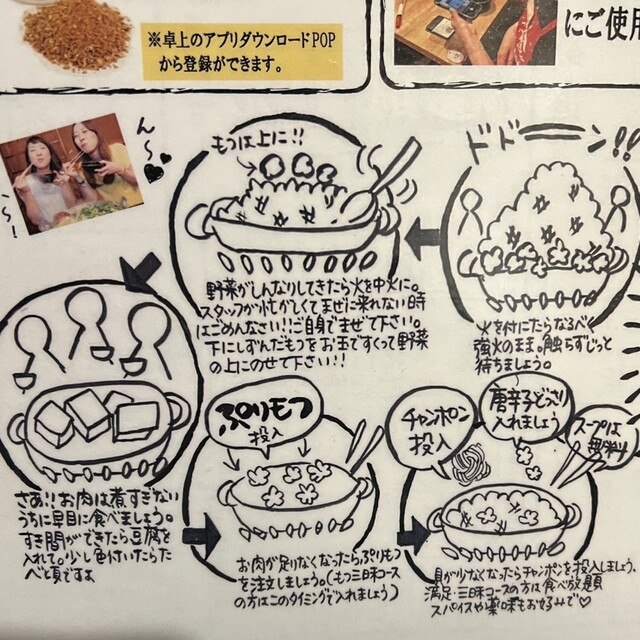 ※卓上のアプリダウンロードPOP
から登録ができます。
にご使用
ん〜
〜!
もつは上に!!
ドドーーン!!
火を付けたらなるべく
強火のまま。触らずじっと
待ちましょう。
野菜がしんなりしてきたら火を中火に。
スタッフが忙がしくてまぜに来れない時
はごめんなさい!!ご自身でまぜて下さい。
下にしずんだもつをお玉ですくって野菜
の上にのせて下さい!!
さあ!!お肉は煮すぎない
うちに早目に食べましょう。
すき間ができたら豆腐を
入れて。少し色付いたらた
べと頃ですよ
ぷりモツ
投入
お肉が足りなくなったらぷりもつ
を注文しましょう。(もつ三昧コース
の方はこのタイミングで入れましょう)
チャンポン
投入
唐辛子どっさり
入れましょう
スープは
無料!
具が少なくなったらチャンポンを投入しましょう。
満足・三昧コースの方は食べ放題
スパイスや薬味もお好みで♡